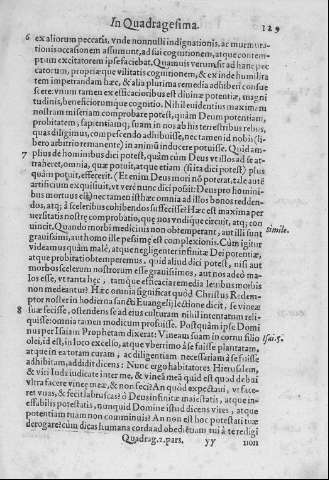 In Quadragesima. 129
6 ex aliorum peccatis, vnde nonnulli indignationis, ac murmura-
tionis occasionem assumunt, ad sui cognitionem, atque contem-
ptum excitatorem ipse faciebat. Quamuis verum sit ad hanc pec
catorum, propriæque vilitatis cognitionem, & ex inde humilita
tem impetrandam hæc, & alia plurima remedia adhiberi consue
scere: vnum tamen ex efficacioribus est diuinæ potentiæ, magni
tudinis, beneficiorumque cognitio. Nihil euidentius maximam
nostram miseriam comprobare potest, quàm Deum potentiam,
probitatem, sapientiamq; suam in nos ab his terrestribus rebus,
quas diligimus, compescendo adhibuisse, nec tamen id nobis (li-
bero arbitrio remanente) in animũ inducere potuisse. Quid am-
7 plius de hominibus dici potest, quàm cùm Deus vt illos ad se at-
traheret, omnia, quæ potuit, atque etiam (si ita dici potest) plus
quàm potuit, effecerit. (Et enim Deus mori nõ poterat, tale autẽ
artificium exquisiuit, vt verè nunc dici possit: Deus pro homini-
bus mortuus est) nec tamen isthæc omnia ad illos bonos redden-
dos, atq; à sceleribus cohibendos suffecisse? Hæc est maxima per
uersitatis nostræ comprobatio, quæ nos vndique circuit, atq; con
uincit. Quando morbi medicinis non obtemperant, aut illi sunt Simile.
grauissimi, aut homo ille pessimę est complexionis. Cùm igitur
videamus quàm malè, atque negligenter infinitæ Dei potentiæ,
atque probitati obtemperemus, quid aliud dici potest, nisi aut
morbos scelerum nostrorum esse grauissimos, aut nos adeò ma-
los esse, vt tanta hęc, tamque efficacia remedia leuibus morbis
non medeantur? Hæc omnia significat quòd Christus Redem-
ptor noster in hodierna sancti Euangelij lectione dicit, se vineæ
8 suæ fecisse, ostendens se ad eius culturam nihil intentatum reli-
quisse: omnia tamen modicum profuisse. Postquàm ipse Domi
nus per Isaiam Prophetam dixerat: Vineam suam in cornu filio Isai. 5.
olei, id est, in loco excelso, atque vberrimo à se fuisse plantatam,
atque in ea totam curam, ac diligentiam necessariam à se fuisse
adhibitam, addidit dicens: Nunc ergo habitatores Hierusalem,
& viri Iuda iudicate inter me, & vineã meã quid est quod debui
vltra facere vineę meæ, & non feci? An quòd expectaui, vt face-
ret vuas, & fecit labruscas? ò Deus infinitæ maiestatis, atque in-
effabilis potestatis, nunquid Domine istud dicens vires, atque
potentiam tuam non comminuis? An non est hoc potestati tuæ
derogare? cùm dicas humana corda ad obediẽtiam tui à te redigi
Quadrag. 2. pars. yy non